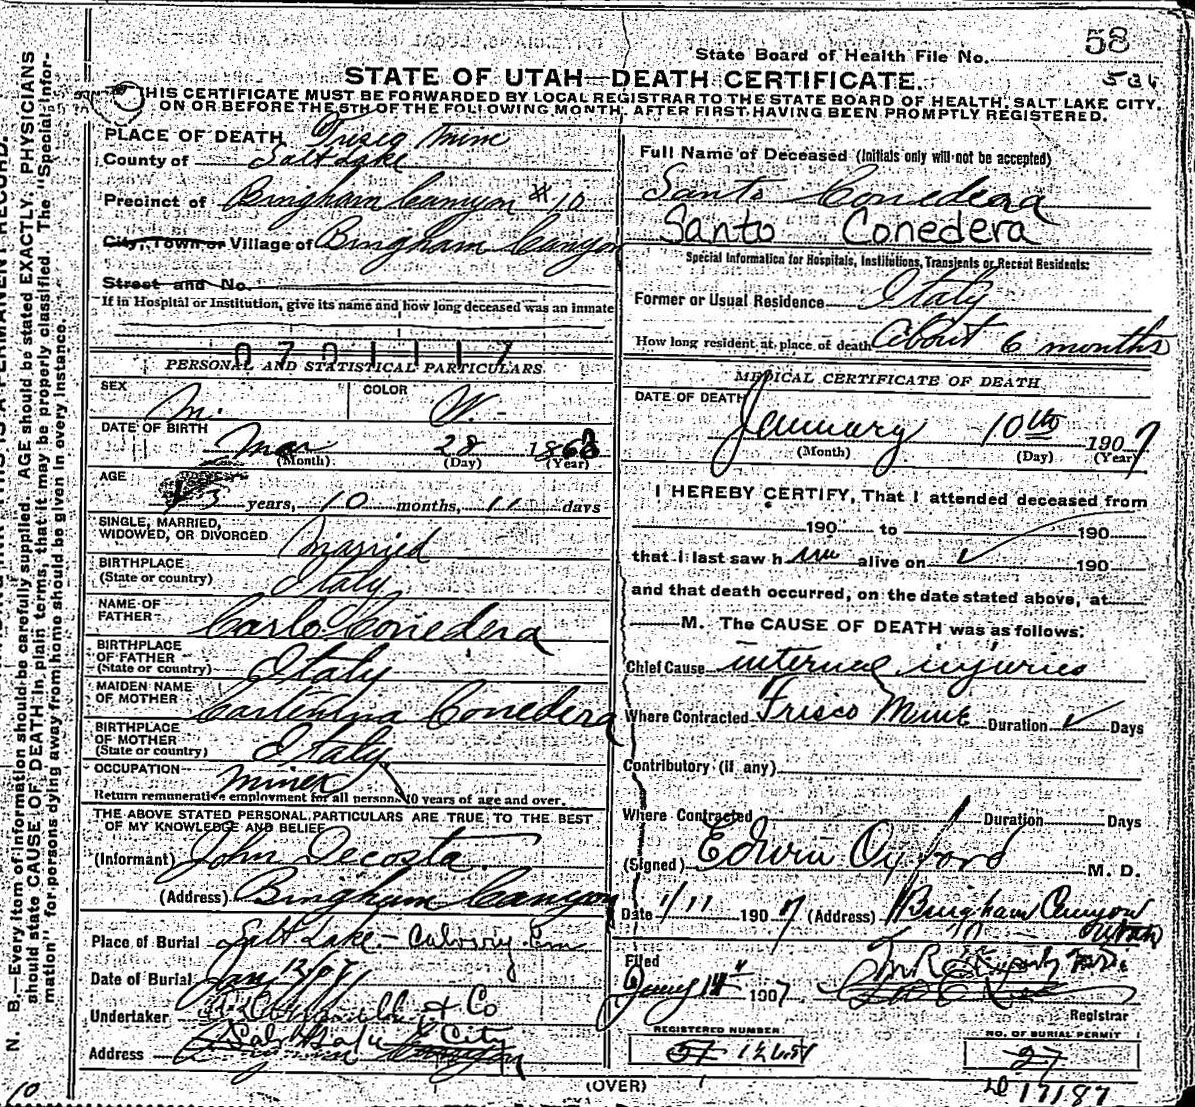 58
State Board of Health File No.
536
STATE OF UTAH—DEATH CERTIFICATE.
THIS CERTIFICATE MUST BE FORWARDED BY LOCAL REGISTRAR TO THE STATE BOARD OF HEALTH, SALT LAKE CITY,
ON OR BEFORE THE 5TH OF THE FOLLOWING MONTH, AFTER FIRST HAVING BEEN PROMPTLY REGISTERED.
PLACE OF DEATH
County of Salt Lake
Precinct of Bingham Canyon #10
City, Town or Village of Bingham Canyon
Street and No.
If in Hospital or Institution, give its name and how long deceased was an inmate
0701117
PERSONAL AND STATISTICAL PARTICULARS
SEX M.
COLOR W.
DATE OF BIRTH
Mar 28 186
(Month) (Day) (Year)
AGE
3 years, 10 months, 11 days
SINGLE, MARRIED,
WIDOWED, OR DIVORCED Married
BIRTHPLACE
(State or country) Italy
NAME OF
FATHER Carlo Conedera
BIRTHPLACE
OF FATHER
(State or country) Italy
MAIDEN NAME
OF MOTHER Conedera
BIRTHPLACE
OF MOTHER
(State or country) Italy
OCCUPATION miner
Return remunerative employment for all persons 10 years of age and over.
THE ABOVE STATED PERSONAL PARTICULARS ARE TRUE TO THE BEST
OF MY KNOWLEDGE AND BELIEF
(Informant) John Decosta
(Address) Bingham Canyon
Place of Burial Salt Lake - Calvary Cem
Date of Burial Jan 12/07
Undertaker & Co
Address City
Full Name of Deceased (Initials only will not be accepted)
Santo Conedera
Santo Conedera
Special Information for Hospitals, Institutions, Transients or Recent Residents:
Former or Usual Residence Italy
How long resident at place of death About 6 months
MEDICAL CERTIFICATE OF DEATH
DATE OF DEATH
January 10th 1907
(Month) (Day) (Year)
I HEREBY CERTIFY, That I attended deceased from
190 to 190
that I last saw h im alive on 190
and that death occurred, on the date stated above, at
M. The CAUSE OF DEATH was as follows:
Chief Cause internal injuries
Where Contracted Frisco Mine Duration Days
Contributory (if any)
Where Contracted Duration Days
(Signed) Edwin Oxford M. D.
Date 1/11 1907 (Address) Bingham Canyon
Utah
Filed
Jany 14" 1907
Registrar
REGISTERED NUMBER
57
NO. OF BURIAL PERMIT
27
17187
(OVER)
N. B.—Every item of information should be carefully supplied. AGE should be stated EXACTLY. PHYSICIANS
should state CAUSE OF DEATH in plain terms, that it may be properly classified. The "Special Infor-
mation" for persons dying away from home should be given in every instance.
10